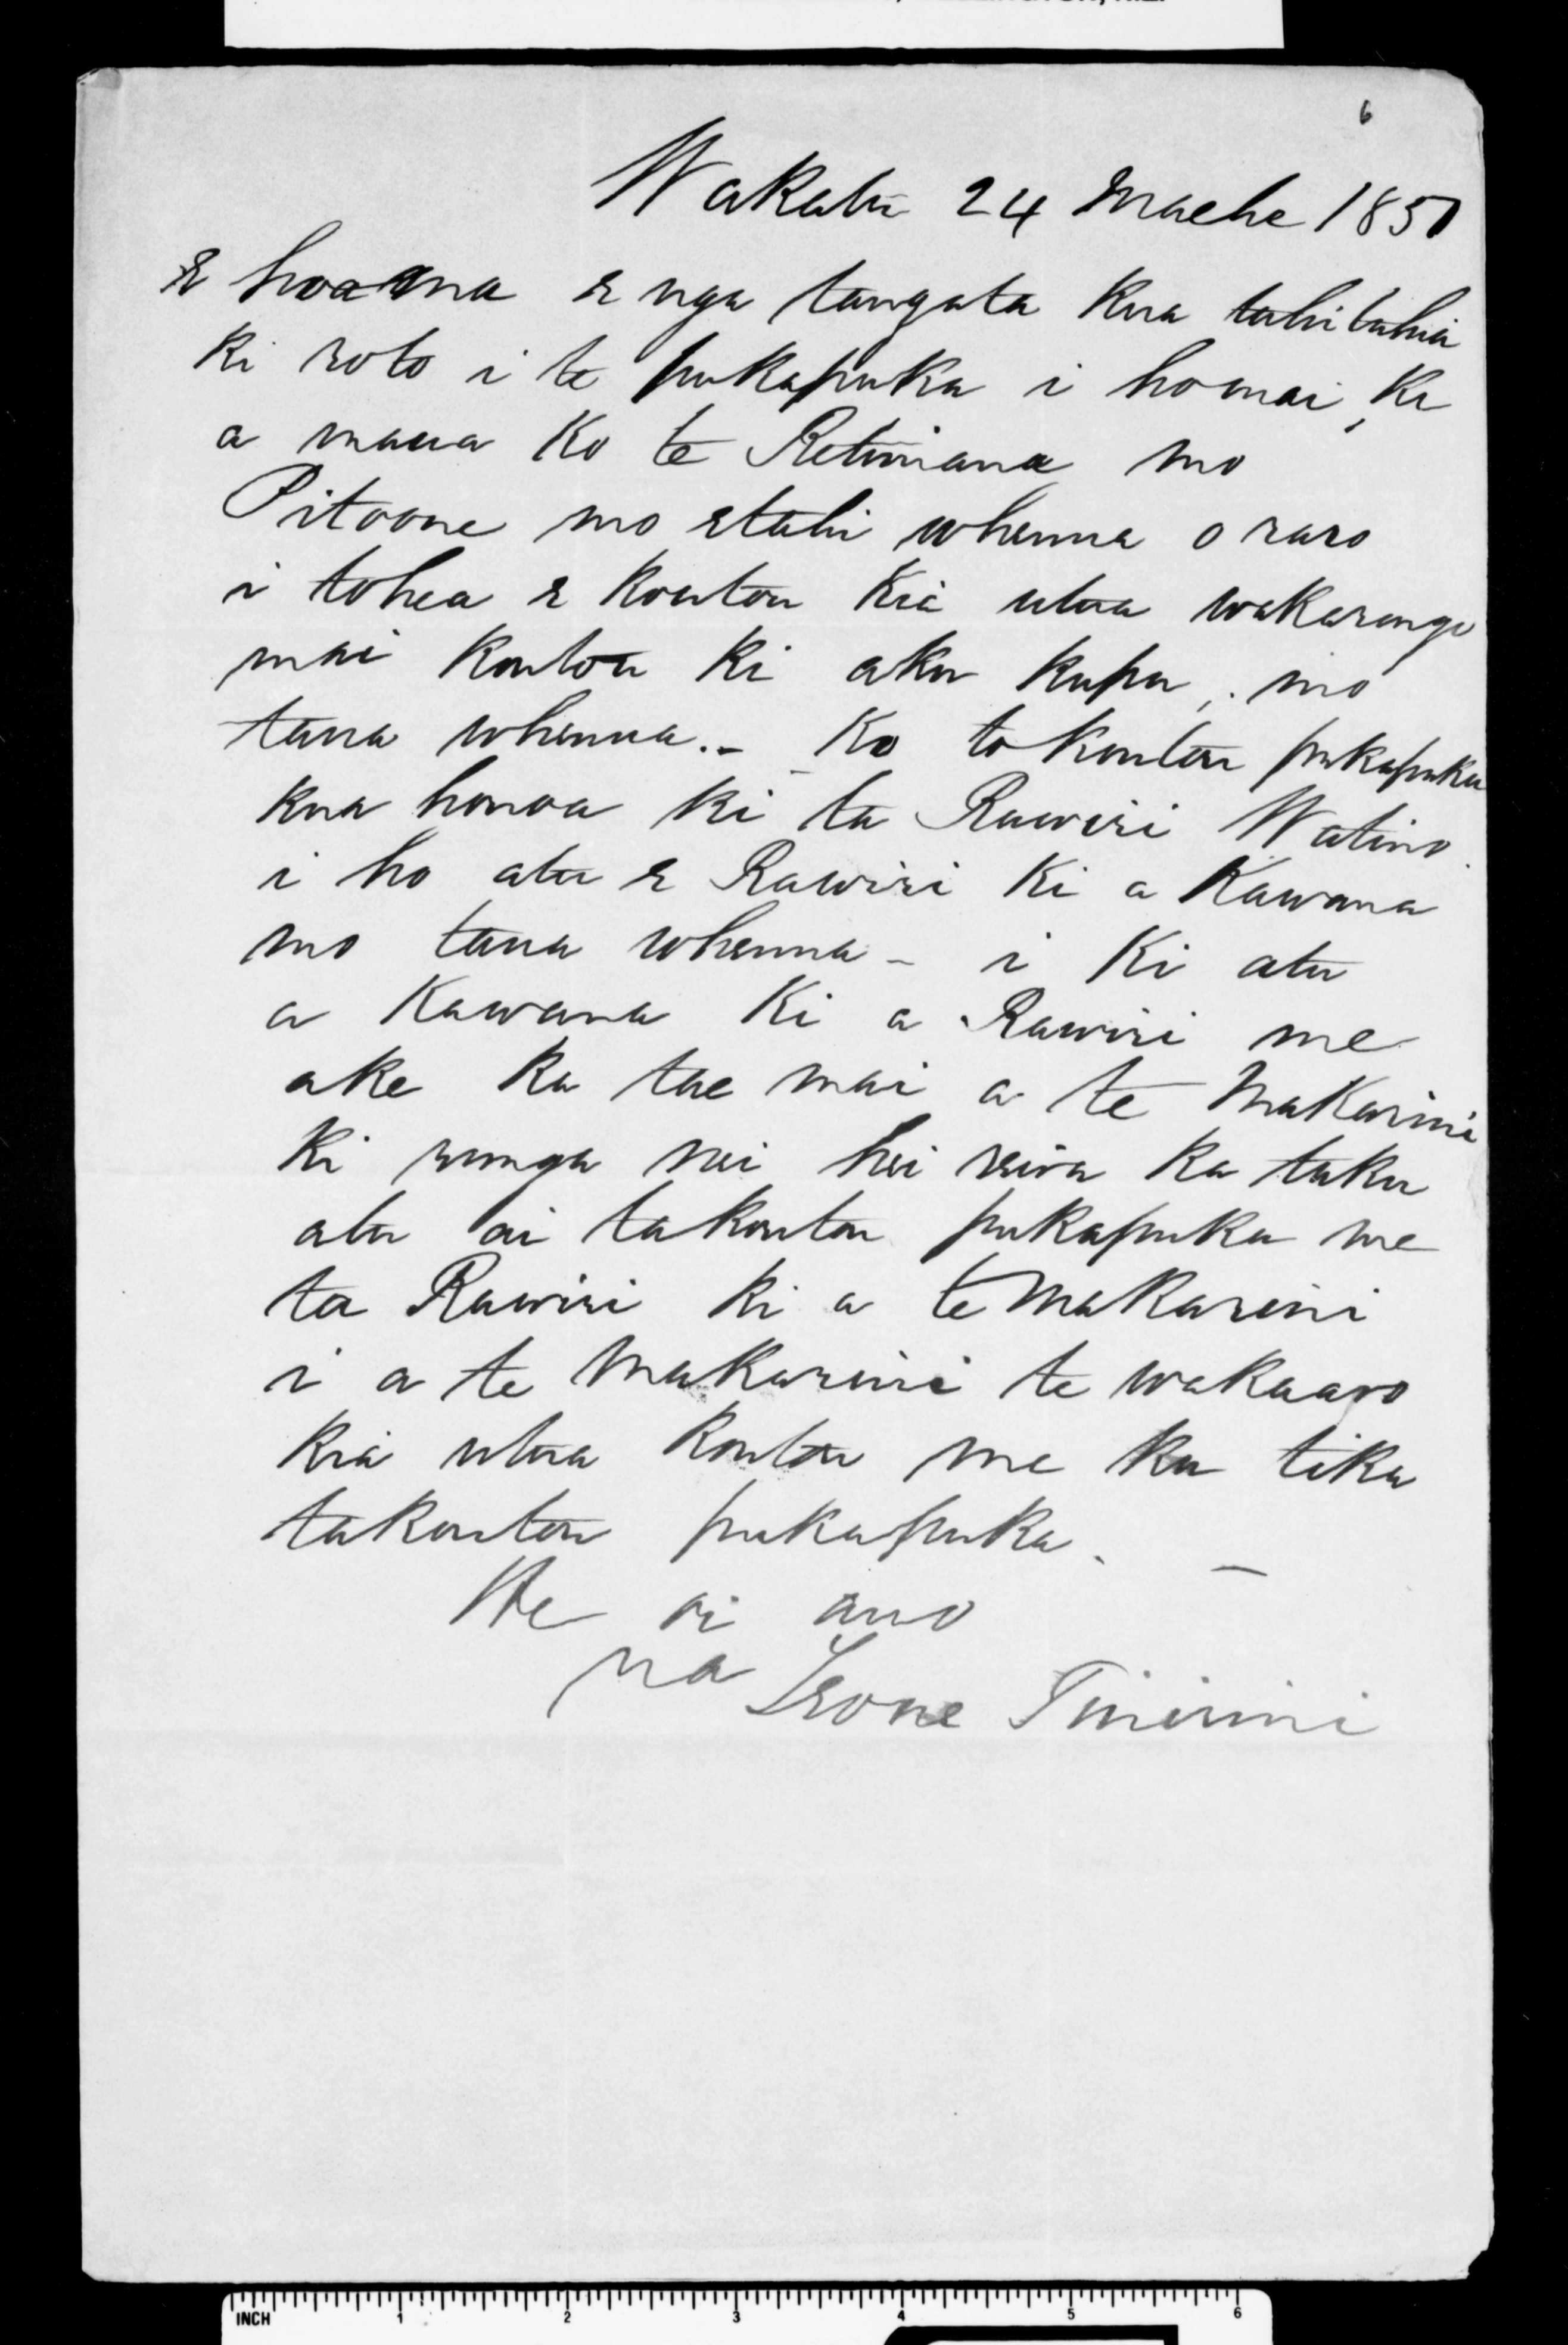 6
Wakatu 24 Maehe 1851
E hoa ma E nga tangata kua tuhituhia
ki roto i te pukapuka i homai ki
a maua ko te Retimana mo
Pitoone mo etahi whenua o raro
i tohea e koutou kia utua wakarongo
mai koutou ki aku kupu, mo
taua whenua. - Ko to koutou pukapuka
kua honoa ki ta Rawiri Watino
i ho atu e Rawiri ki a Kawana
mo taua whenua - i ki atu
a Kawana ki a Rawiri me
ake ka tae mai a te Makarini
ki runga nei hei reira ka tuku
atu ai takoutou pukapuka me
ta Rawiri ki a te Makarini
i a te Makarini te wakaaro
kia utua koutou me ka tika
takoutou pukapuka. -
He oi ano
na
INCH 1 2 3 4 5 6